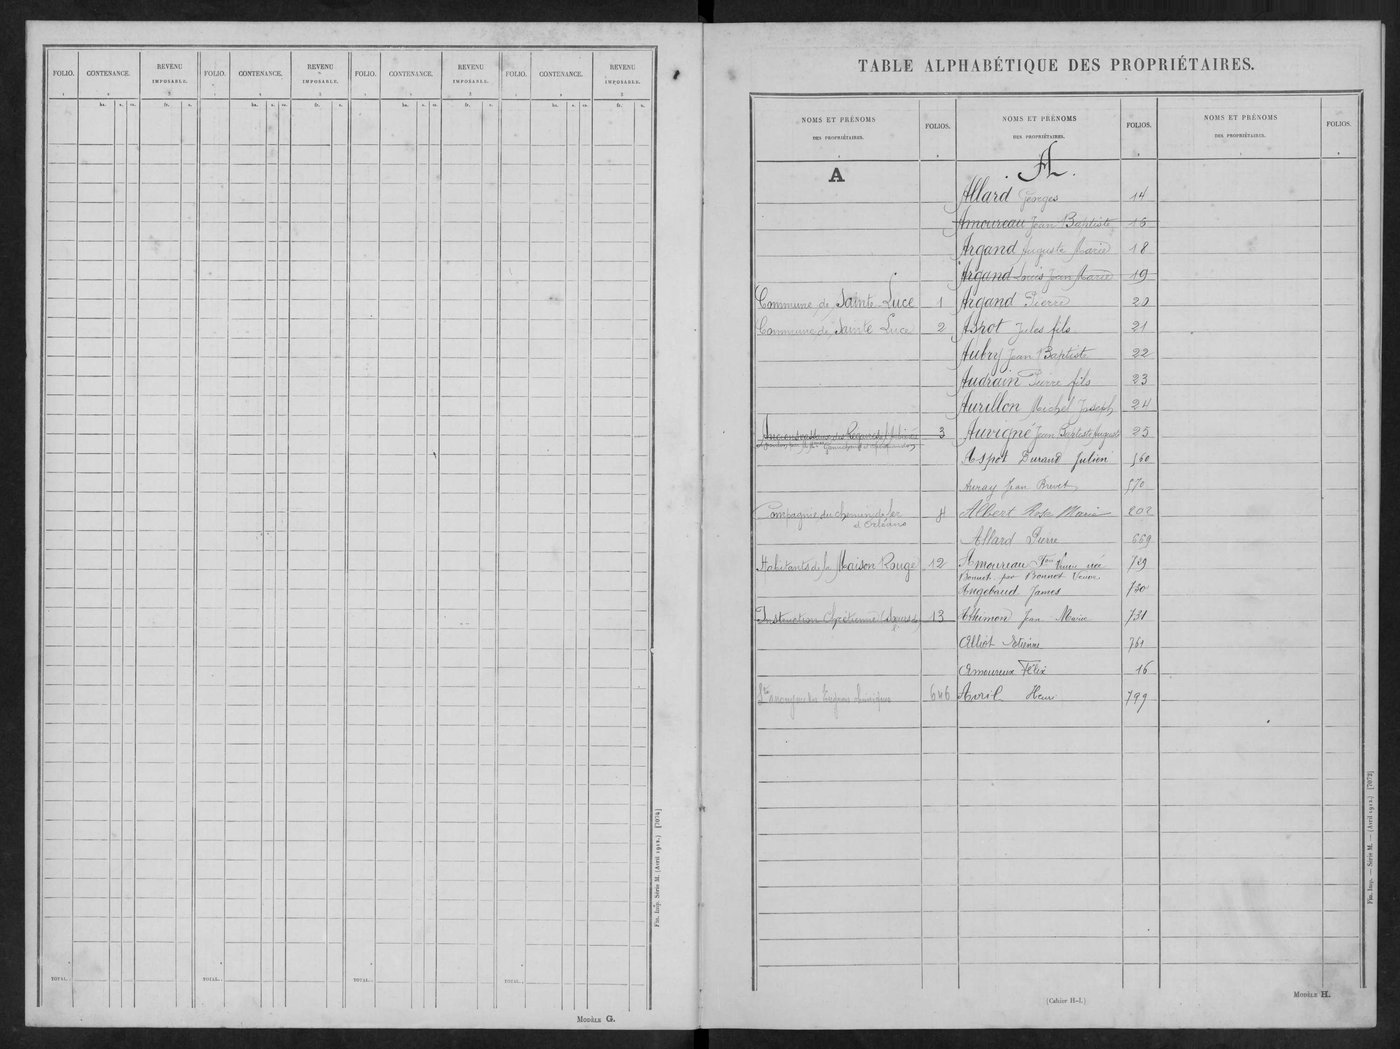 FOLIO. CONTENANCE. REVENU IMPOSABLE. FOLIO. CONTENANCE. REVENU IMPOSABLE. FOLIO. CONTENANCE. REVENU IMPOSABLE. FOLIO. CONTENANCE. REVENU IMPOSABLE.
1 2 3 1 2 3 1 2 3 1 2 3
ha. a. ca. fr. c. ha. a. ca. fr. c. ha. a. ca. fr. c. ha. a. ca. fr. c.
TOTAL. TOTAL. TOTAL. TOTAL.
Fin. Imp. Série M. (Avril 1912.) [7074]
MODÈLE G.
TABLE ALPHABÉTIQUE DES PROPRIÉTAIRES.
NOMS ET PRÉNOMS DES PROPRIÉTAIRES. FOLIOS. NOMS ET PRÉNOMS DES PROPRIÉTAIRES. FOLIOS. NOMS ET PRÉNOMS DES PROPRIÉTAIRES. FOLIOS.
A
Commune de Sainte Luce 1
Commune de Sainte Luce 2
3
Compagnie du chemin de fer
d'Orléans 4
Habitants de la Maison Rouge 12
Instruction Chrétienne 13
646
A.
Allard Georges 14
Amoureau Jean Baptiste 16
Argand Auguste Marie 18
Argand Louis Jean Marie 19
Argand Pierre 20
Aspot Jules fils 21
Aubry Jean Baptiste 22
Audrain Pierre fils 23
Aurillon Michel Joseph 24
Auvigné Jean Baptiste Auguste 25
Aspot Durand Julien 560
Auray Jean Brevet 570
Albert Rose Marie 202
Allard Pierre 669
Amoureau Veuve née 729
Bonnet par Bonnet Veuve
Angebaud James 730
Athimon Jean Marie 731
Albert Etienne 761
Amoureux Félix 16
Avril Henri 799
(Cahier H-I.)
MODÈLE H.
Fin. Imp. — Série M. — (Avril 1912.) [7073]